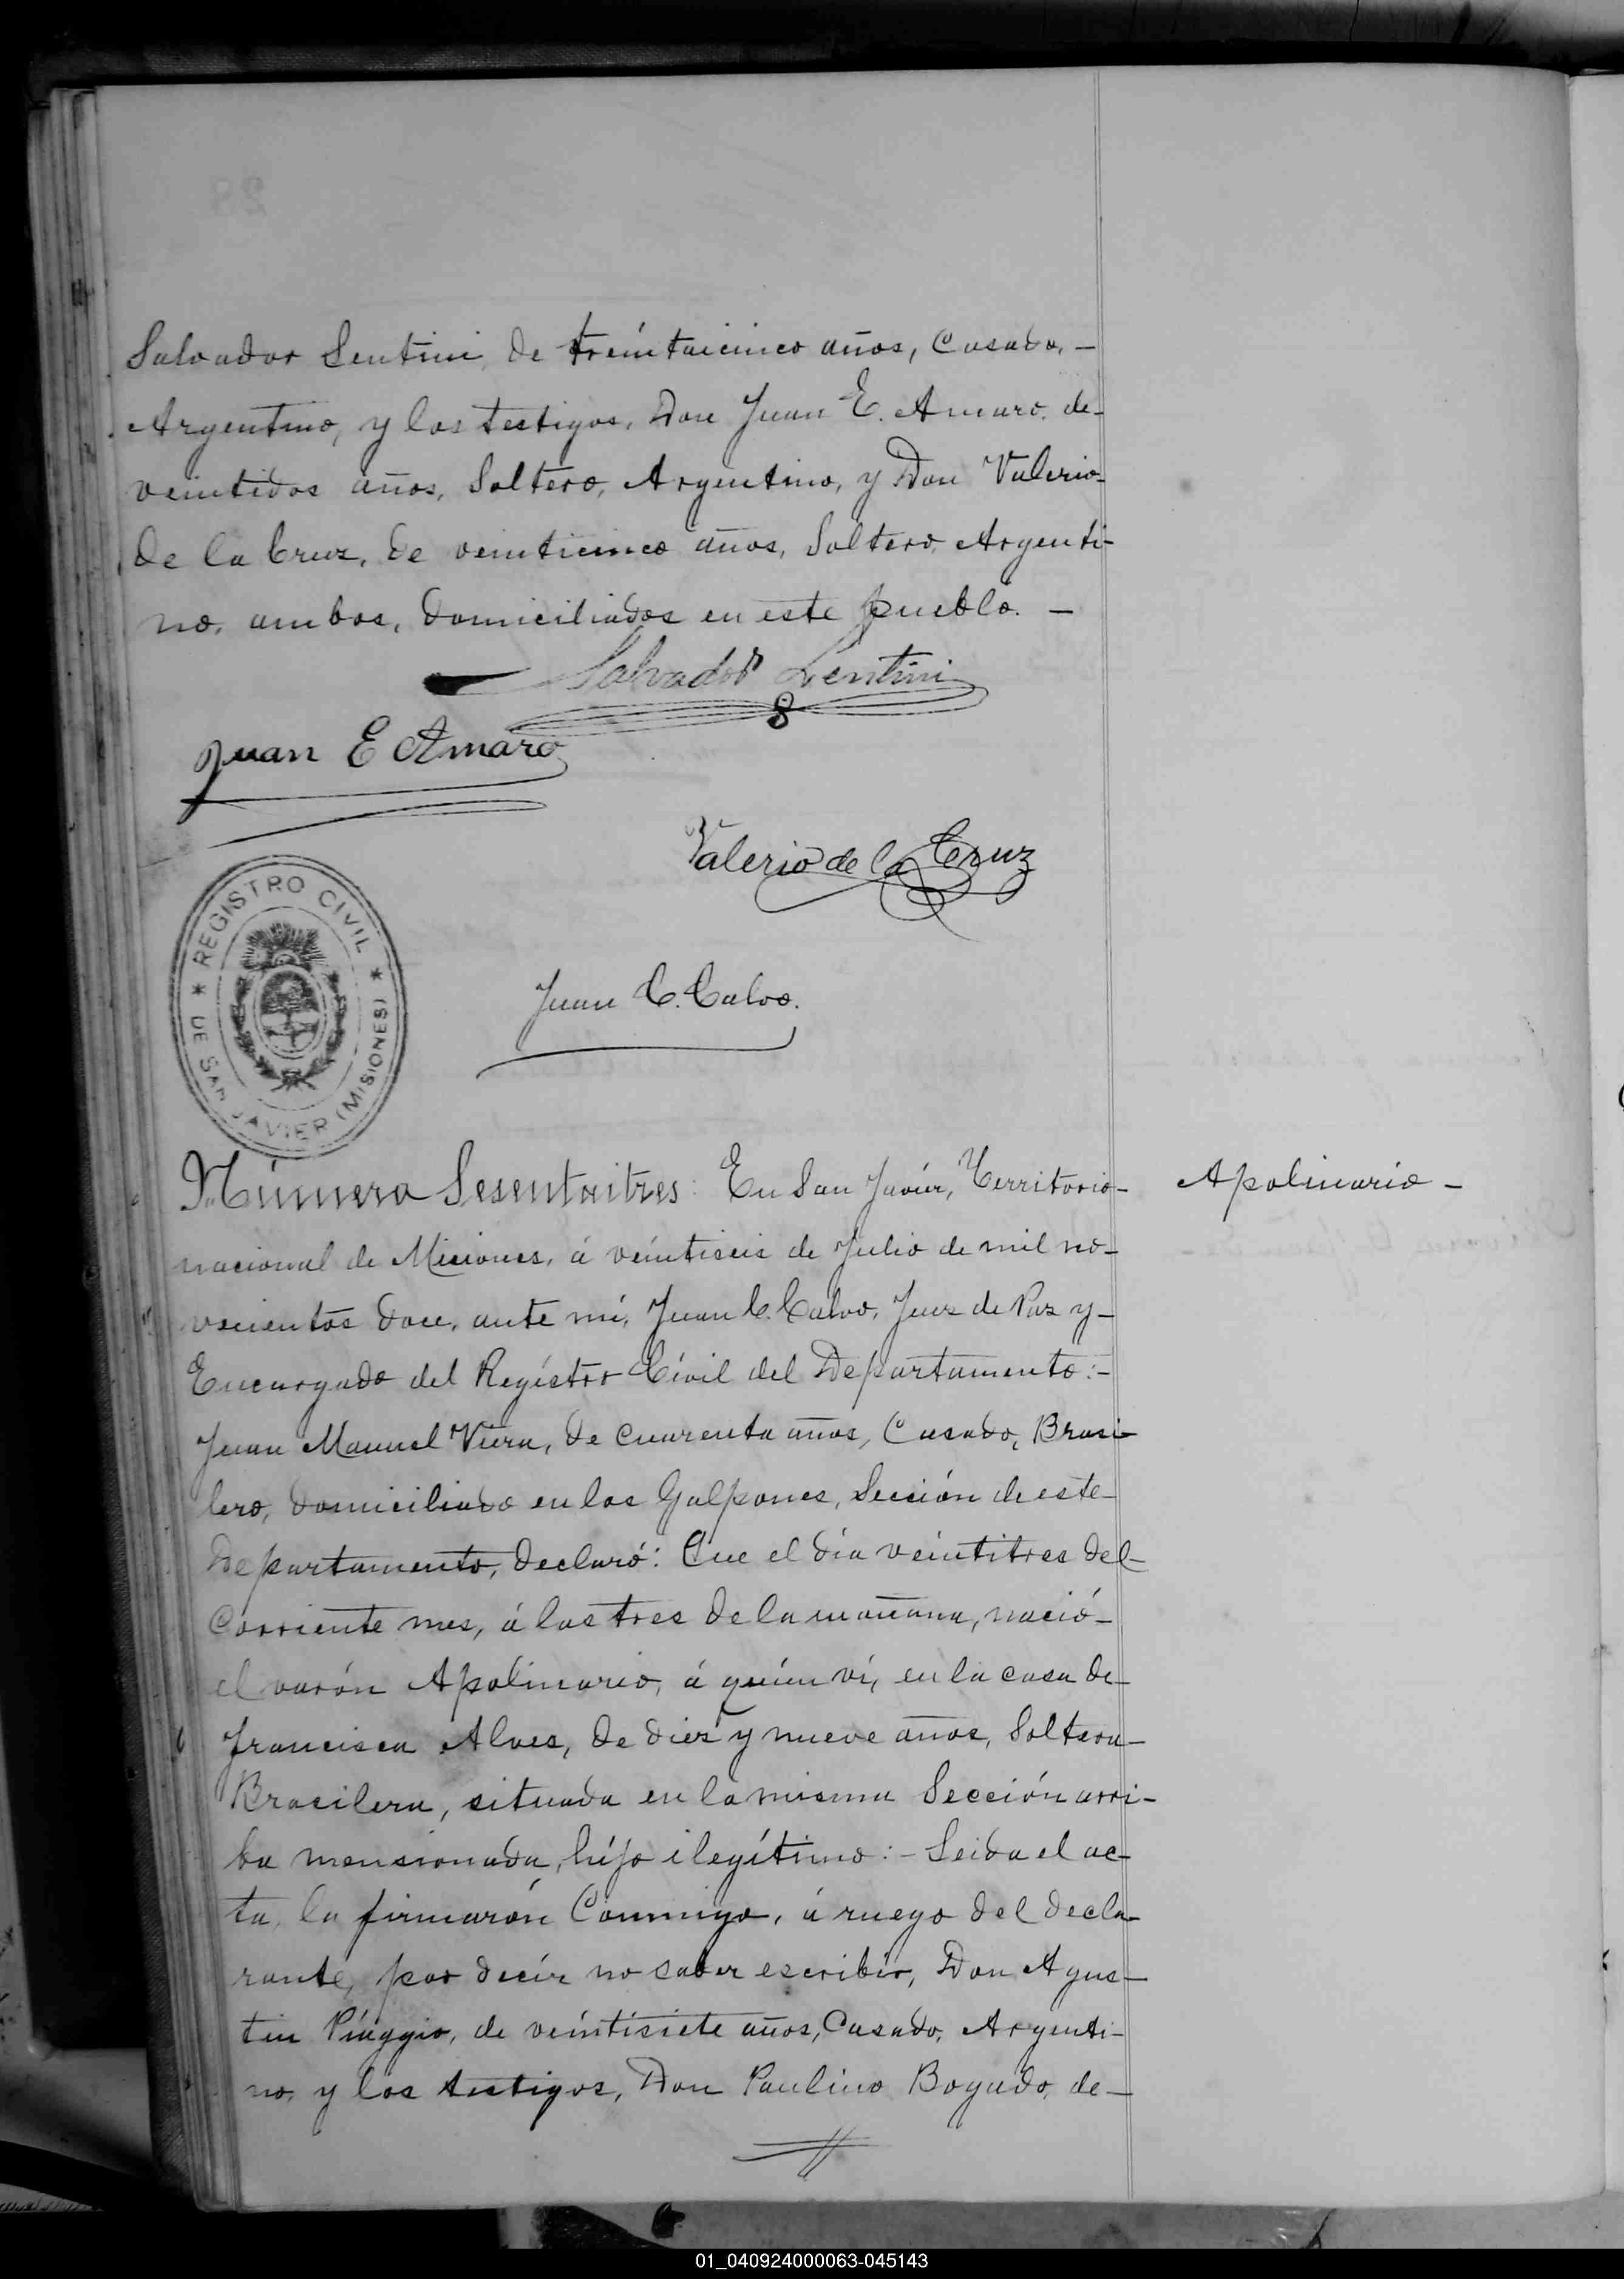 Salvador Lentini, de treintaicinco años, Casado, —
Argentino, y los testigos, Don Juan E. Amaro, de—
veintidos años, Soltero, Argentino, y Don Valerio—
de la Cruz, de veinticinco años, Soltero, Argenti—
no, ambos, domiciliados en este pueblo. —
Salvador Lentini
Juan E Amaro
Valerio de la Cruz
REGISTRO CIVIL
DE SAN JAVIER (MISIONES)
Juan C. Calvo.
Número Sesentaitres: En San Javier, Territorio—
Apolinario —
nacional de Misiones, á veintiseis de Julio de mil no—
vecientos doce, ante mí, Juan C. Calvo, Juez de Paz y—
Encargado del Registro Civil del Departamento:—
Juan Manuel Viera, de cuarenta años, Casado, Brasi—
lero, domiciliado en los Galpones, Sección de este—
Departamento, declaró: Que el día veintitres del—
Corriente mes, á las tres de la mañana, nació—
el varón Apolinario, á quien ví, en la casa de—
Francisca Alves, de diez y nueve años, Soltera—
Brasilera, situada en la misma Sección arri—
ba mensionada, hijo ilegítimo:— Leida el ac—
ta, la firmarón Conmigo, á ruego del decla—
rante, por decir no saber escribir, Don Agus—
tin Piaggio, de veintisiete años, Casado, Argenti—
no, y los testigos, Don Paulino Bogado, de—
01_040924000063-045143